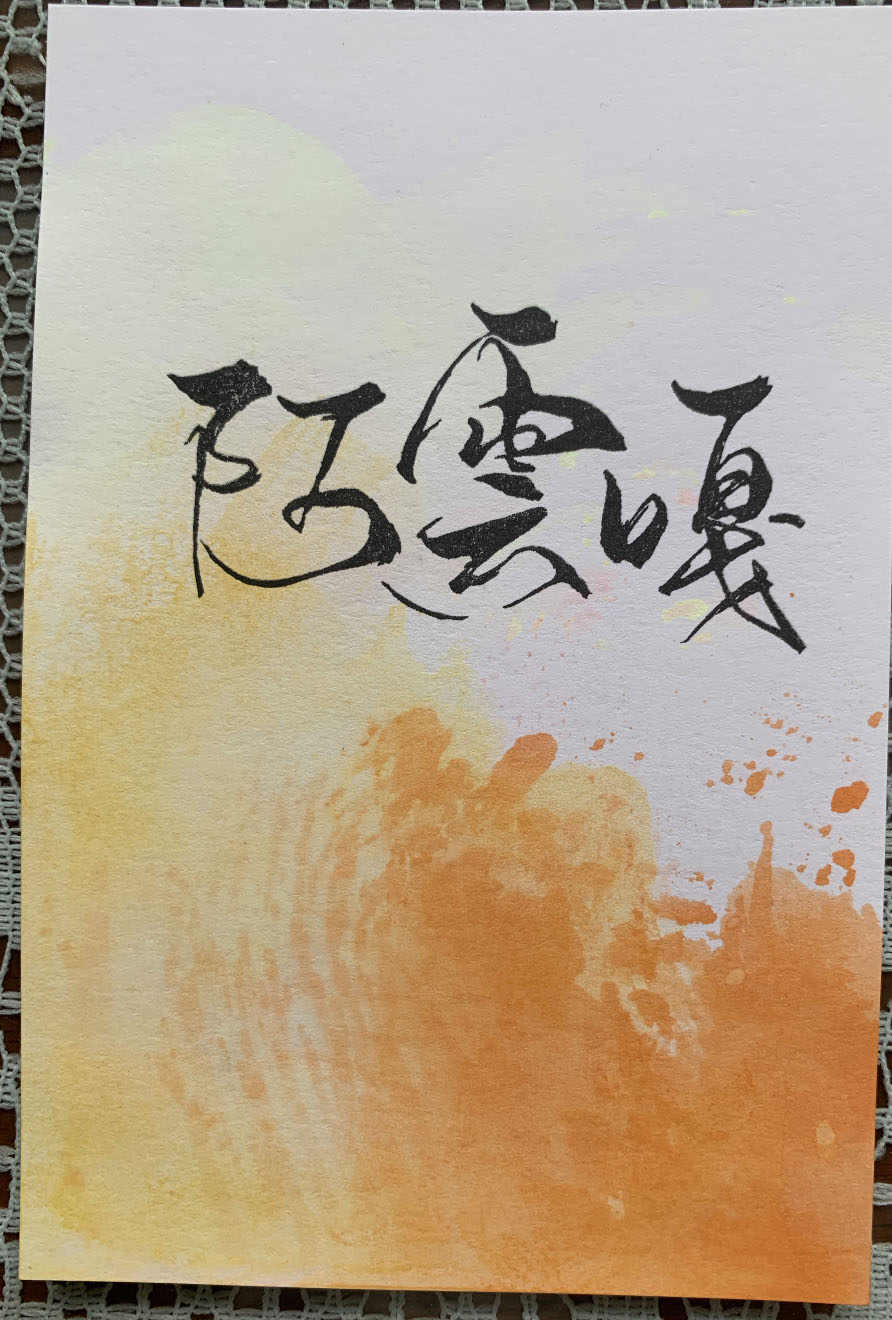 阿雲嘎